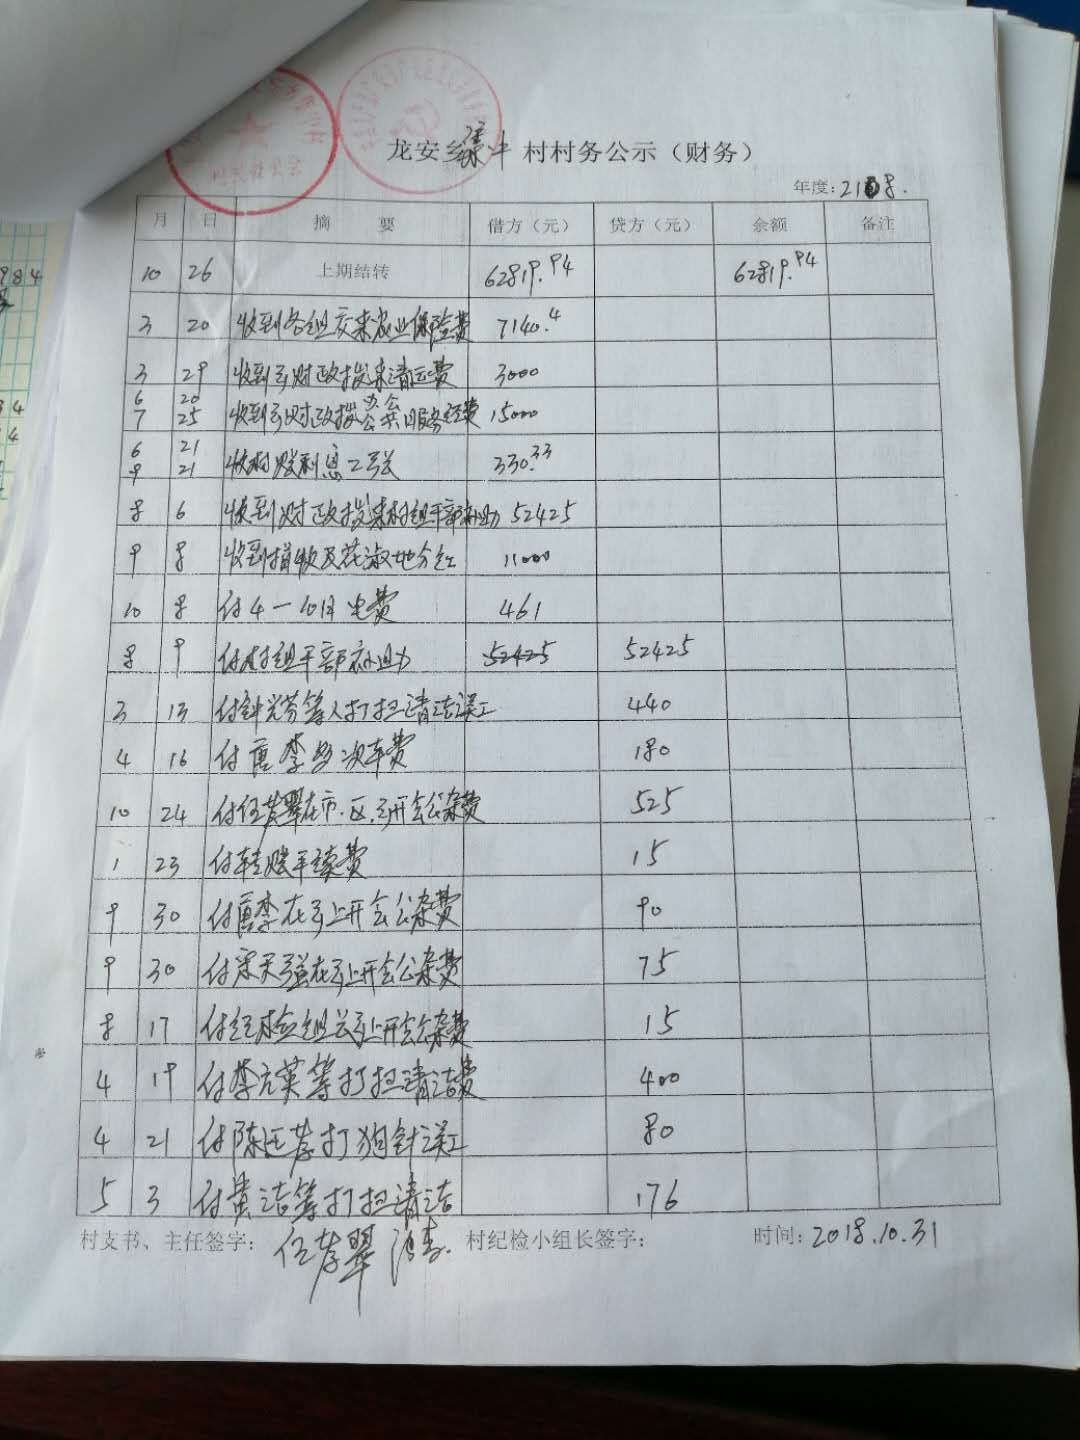 龙安乡 村村务公示（财务）
年度: 2018.
月 日 摘 要 借方（元） 贷方（元） 余额 备注
10 26 上期结转 62819.94 62819.94
3 20 收到各组交来农业保险费 7140.4
3 29 收到乡财政拨来清运费 3000
6 20
7 25 收到乡财政拨办公公共服务经费 15000
6 21
9 21 收村账利息2张 330.33
8 6 收到财政拨来村组干部补助 52425
9 8 收到捐款及花淑地分红 11000
10 8 付4-10月电费 461
8 9 付村组干部补助 52425 52425
3 13 付钟光芬等人打扫清洁误工 440
4 16 付唐李多次车费 180
10 24 付任孝翠在市.区.乡开会公杂费 525
1 23 付转账手续费 15
9 30 付唐李在乡上开会公杂费 90
9 30 付宋天强在乡上开会公杂费 75
8 17 付纪检组长乡上开会公杂费 15
4 19 付李元英等打扫清洁费 400
4 21 付陈 打狗针误工 80
5 3 付黄洁等打扫清洁 176
村支书、主任签字： 任孝翠 村纪检小组长签字： 时间: 2018.10.31
984